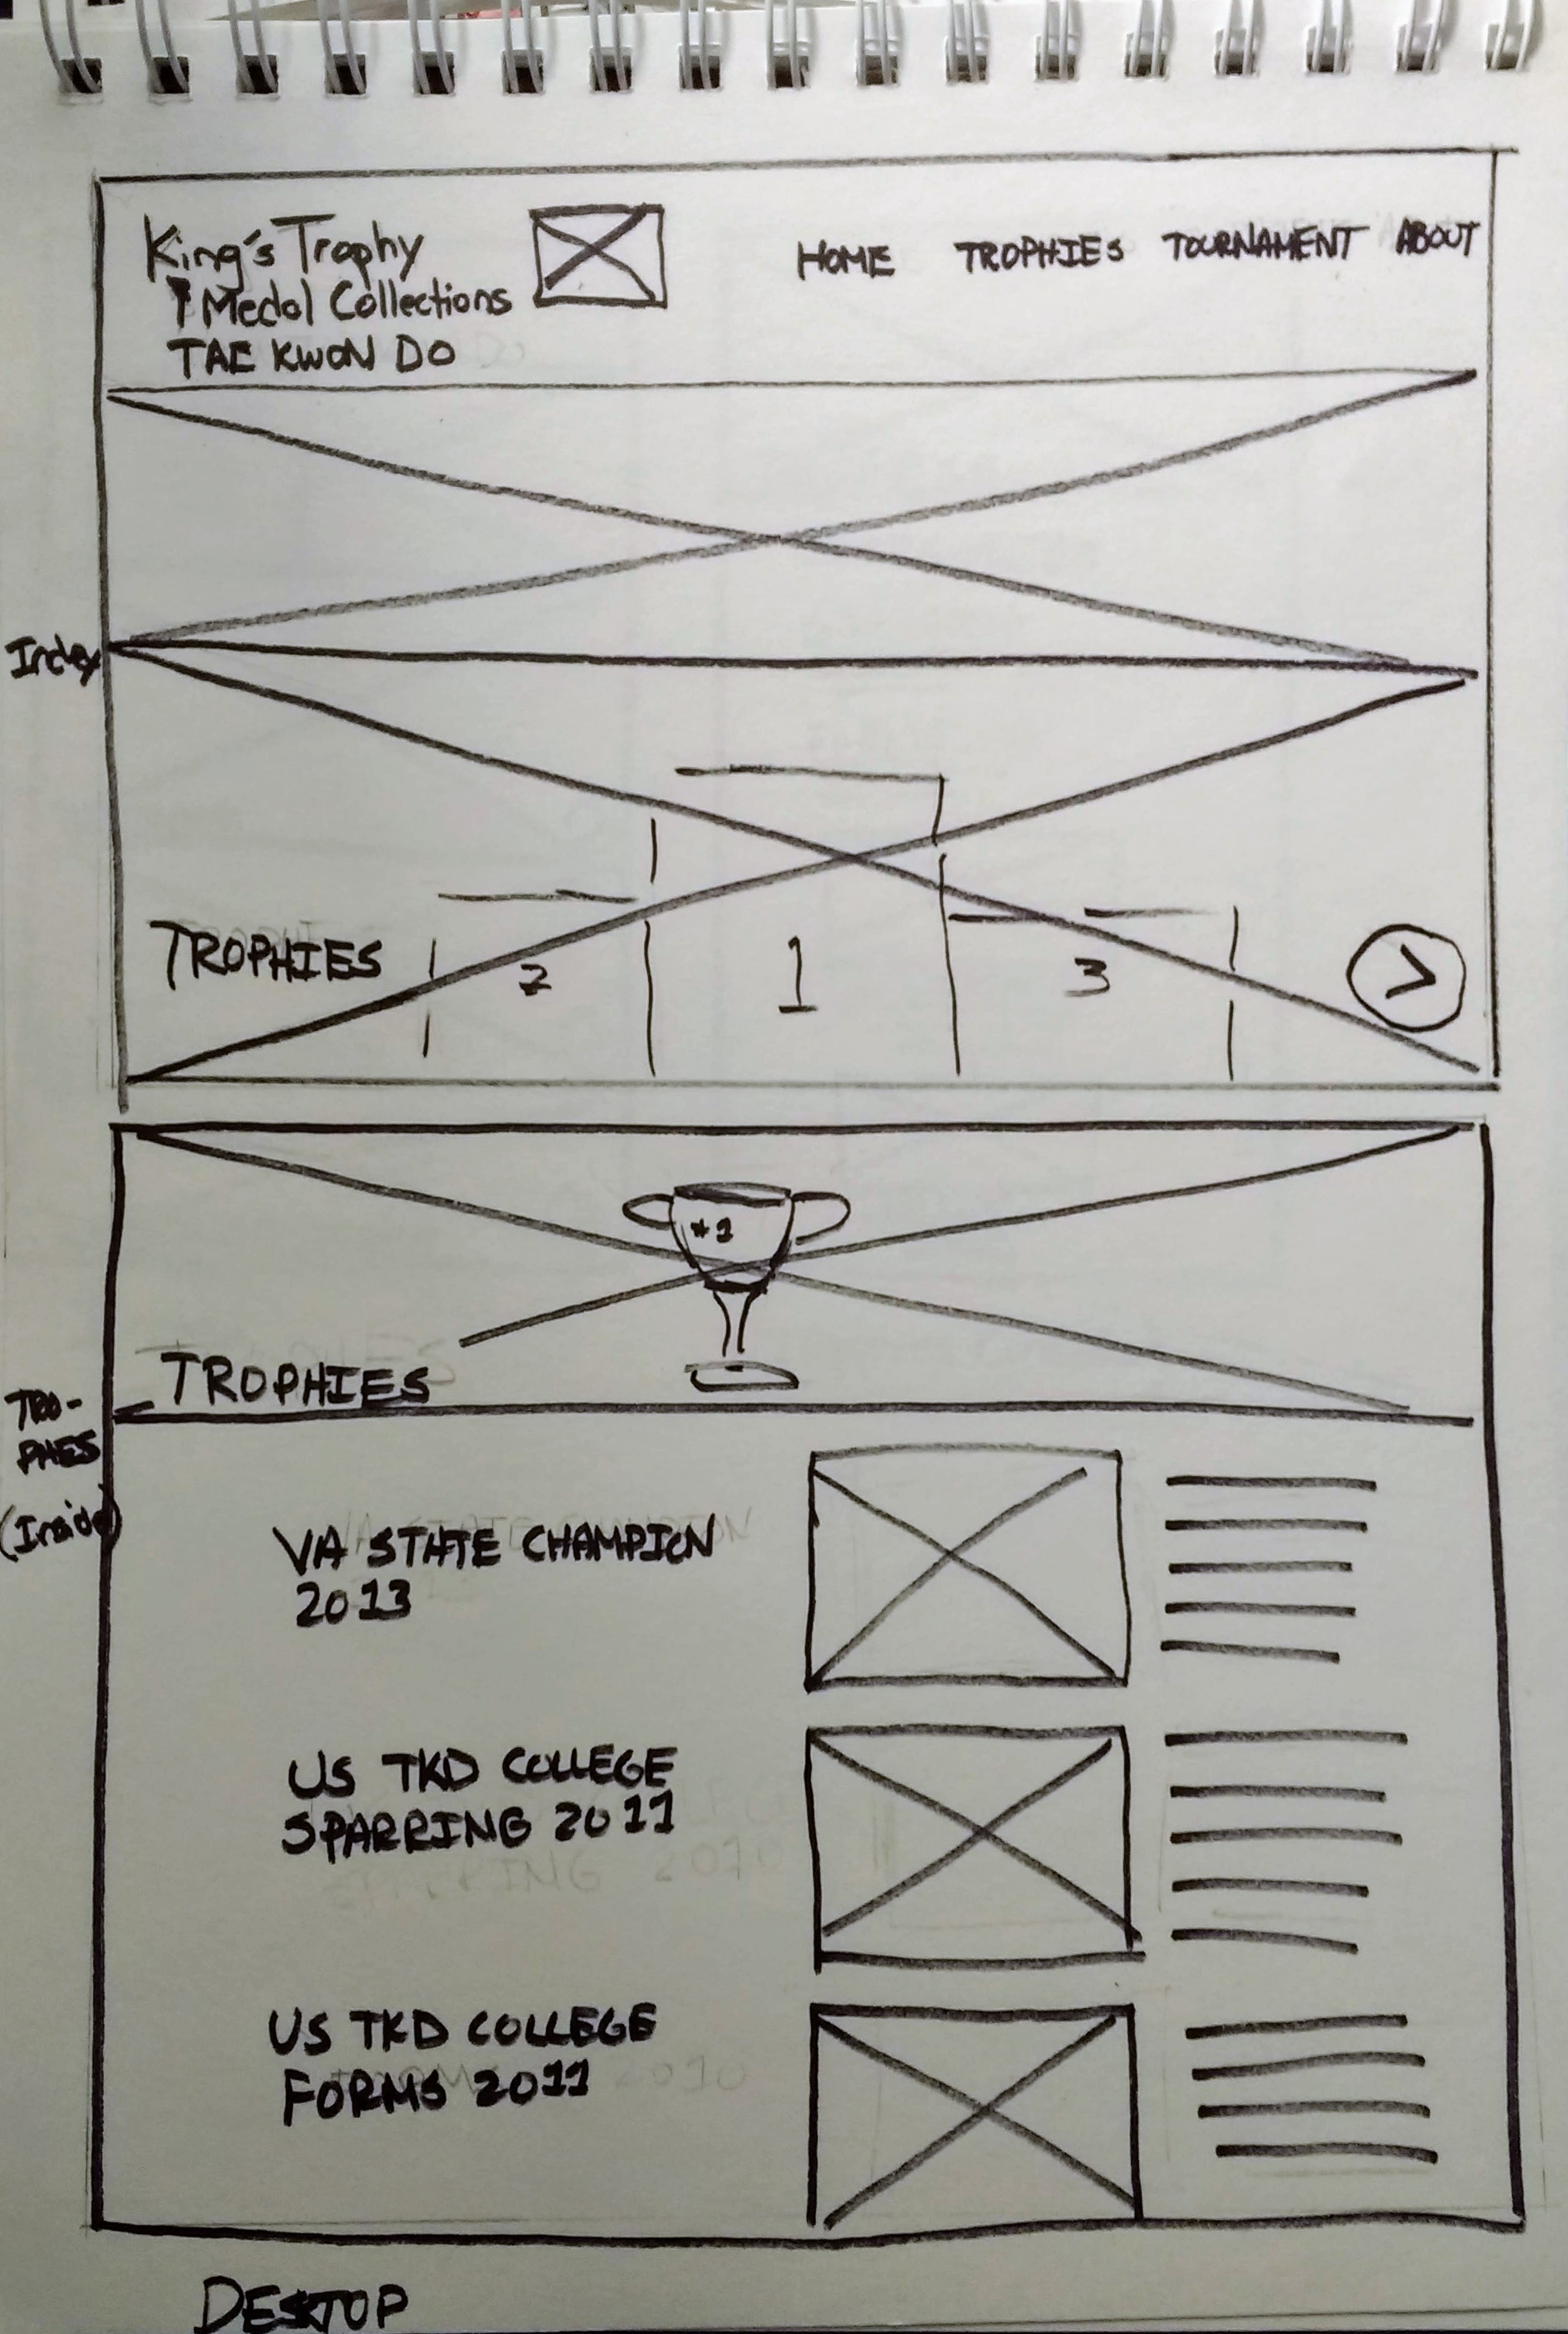 King's Trophy
Medal Collections
TAE KWON DO
HOME TROPHIES TOURNAMENT ABOUT
Index
TROPHIES 2 1 3 >
#1
TROPHIES
TRO-
PHES
(Inside)
VA STATE CHAMPION
2013
US TKD COLLEGE
SPARRING 2011
US TKD COLLEGE
FORMS 2011
DESKTOP